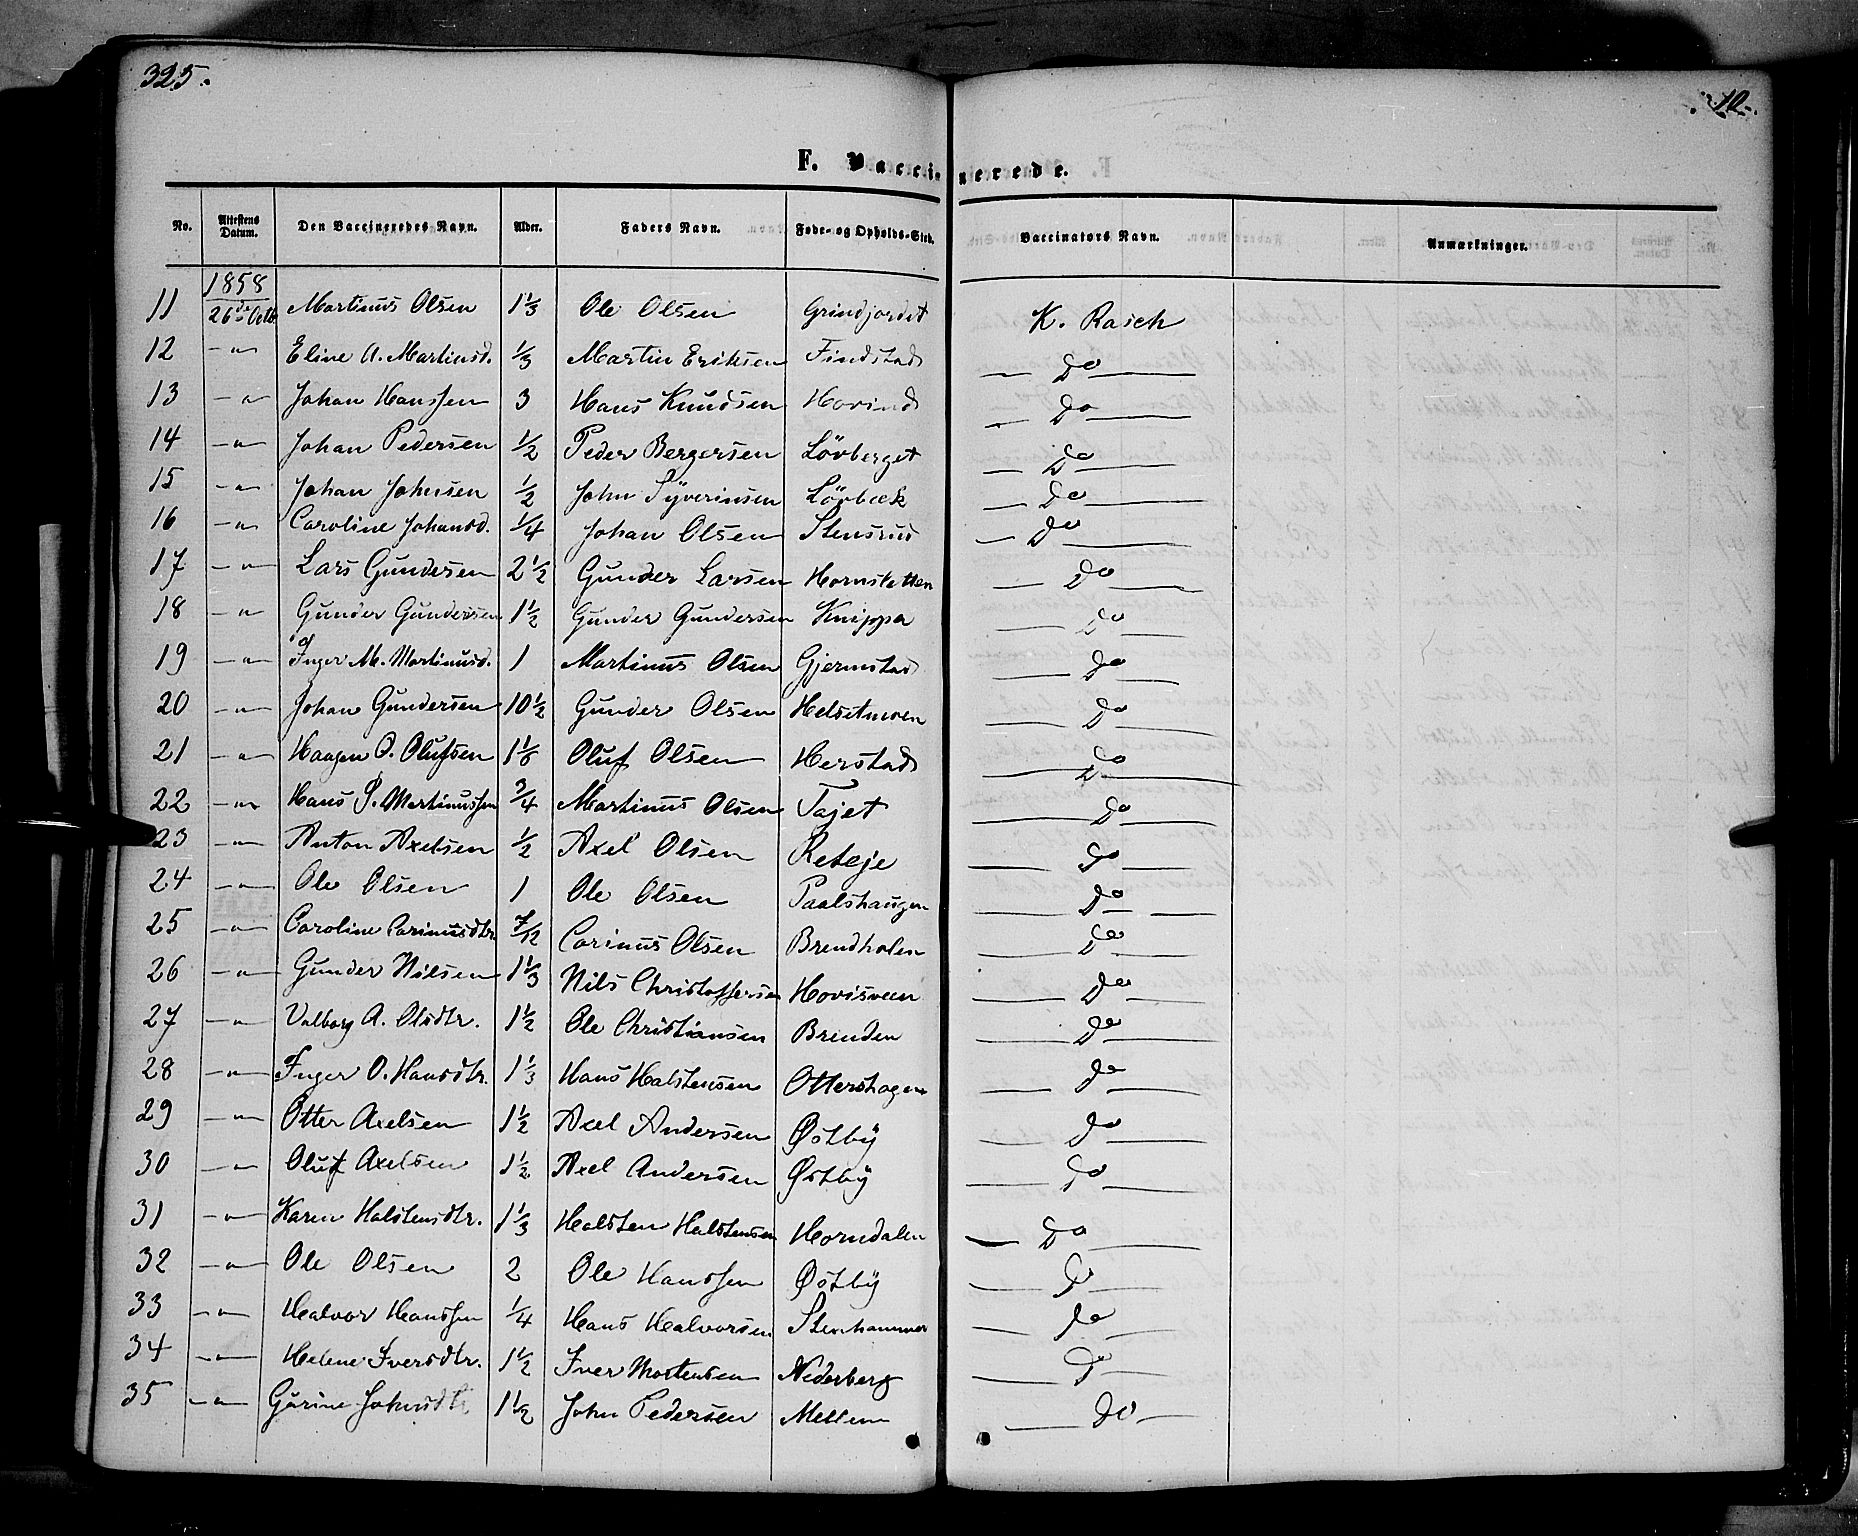 325.
10.
F. Vaccinerede.
No. | Attestens Datum. | Den Vaccineredes Navn. | Alder. | Faders Navn. | Føde- og Opholds-Sted. | Vaccinators Navn. | Anmærkninger.
1858
11 | 26de Octb. | Martinus Olsen | 1 1/3 | Ole Olsen | Grindjordet | K. Rasch
12 | -"- | Eline A. Martinsd. | 1/3 | Martin Eriksen | Findstad | Do
13 | -"- | Johan Hanssen | 3 | Hans Knudsen | Hovind | Do
14 | -"- | Johan Pedersen | 1/2 | Peder Bergersen | Lövberget | Do
15 | -"- | Johan Johnsen | 1/2 | John Syverinsen | Lövbæk | Do
16 | -"- | Caroline Johansd. | 1/4 | Johan Olsen | Stensrud | Do
17 | -"- | Lars Gundersen | 2 1/2 | Gunder Larsen | Hornsletten | Do
18 | -"- | Gunder Gundersen | 1 1/2 | Gunder Gundersen | Knippa | Do
19 | -"- | Inger M. Martinusd. | 1 | Martinus Olsen | Gjermstad | Do
20 | -"- | Johan Gundersen | 10 1/2 | Gunder Olsen | Helsetmoen | Do
21 | -"- | Haagen O. Olufsen | 1 1/6 | Oluf Olsen | Herstad | Do
22 | -"- | Hans P. Martinussen | 3/4 | Martinus Olsen | Tajet | Do
23 | -"- | Anton Axelsen | 1/2 | Axel Olsen | Reteje | Do
24 | -"- | Ole Olsen | 1 | Ole Olsen | Paalshaugen | Do
25 | -"- | Caroline Carinusdtr. | 7/12 | Carinus Olsen | Brendholen | Do
26 | -"- | Gunder Nilsen | 1 1/3 | Nils Christoffersen | Hovisveen | Do
27 | -"- | Valborg A. Olsdtr. | 1 1/2 | Ole Christiansen | Brenden | Do
28 | -"- | Inger O. Hansdtr. | 1 1/3 | Hans Halstensen | Ottershagen | Do
29 | -"- | Otter Axelsen | 1 1/2 | Axel Andersen | Østby | Do
30 | -"- | Oluf Axelsen | 1 1/2 | Axel Andersen | Østby | Do
31 | -"- | Karen Halstensdtr. | 1 1/3 | Halsten Halstensen | Horndalen | Do
32 | -"- | Ole Olsen | 2 | Ole Hanssen | Østby | Do
33 | -"- | Halvor Hanssen | 1/4 | Hans Halvorsen | Stenhammer | Do
34 | -"- | Helene Iversdtr. | 1 1/2 | Iver Mortensen | Nederberg | Do
35 | -"- | Gurine Johnsdtr | 1 1/2 | John Pedersen | Mellem | Do